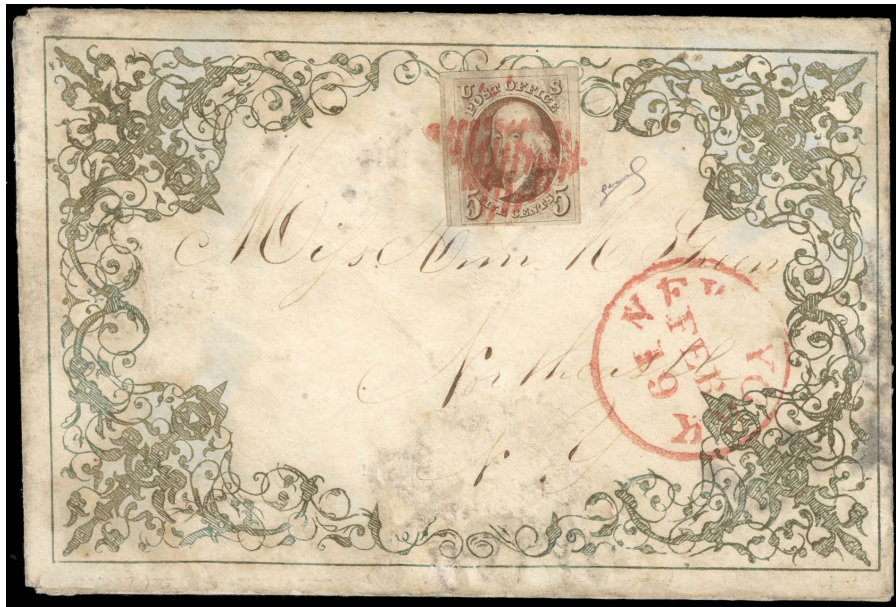 U S
POST OFFICE
5 FIVE CENTS 5
Miss Ann M Green
N Y
NEW YORK
FEB